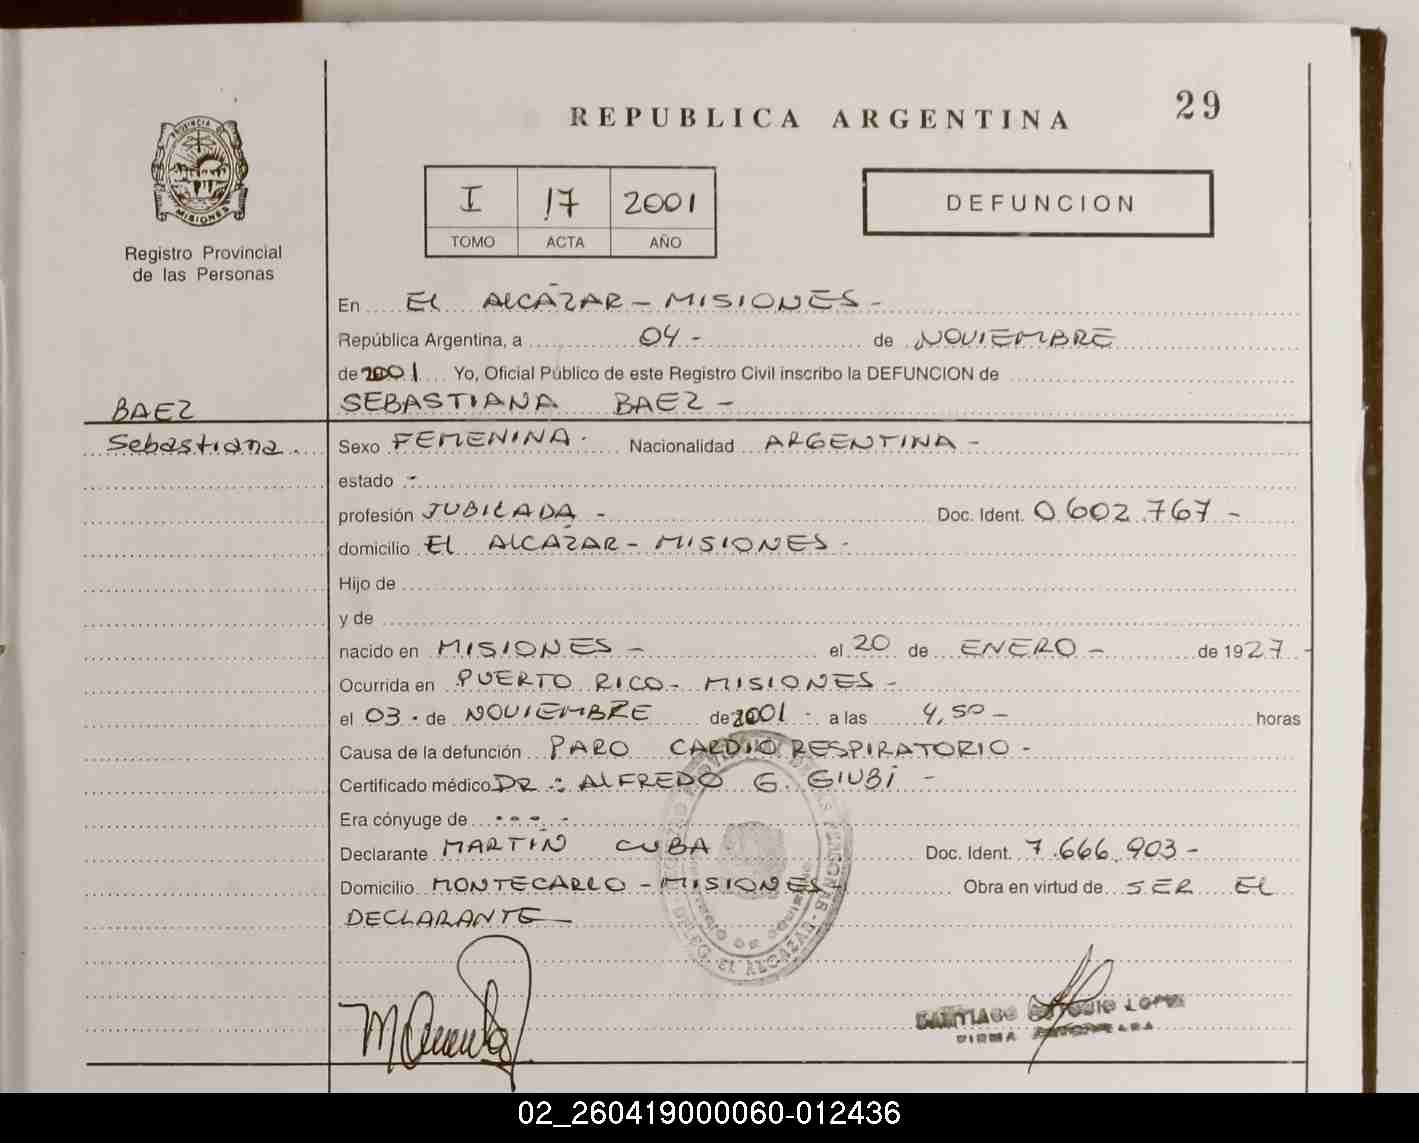 29
REPUBLICA ARGENTINA
PROVINCIA DE
MISIONES
Registro Provincial
de las Personas
I 17 2001
TOMO ACTA AÑO
DEFUNCION
En EL ALCÁZAR - MISIONES -
República Argentina, a 04 - de NOVIEMBRE
de 2001 Yo, Oficial Público de este Registro Civil inscribo la DEFUNCION de
BAEZ
SEBASTIANA BAEZ -
Sebastiana.
Sexo FEMENINA. Nacionalidad ARGENTINA -
estado -
profesión JUBILADA - Doc. Ident. 0.602.767 -
domicilio EL ALCÁZAR - MISIONES -
Hijo de
y de
nacido en MISIONES - el 20 de ENERO - de 1927 -
Ocurrida en PUERTO RICO - MISIONES -
el 03 - de NOVIEMBRE de 2001 - a las 4,50 - horas
Causa de la defunción PARO CARDIO RESPIRATORIO -
Certificado médico DR.: ALFREDO G. GIUBI -
Era cónyuge de - - - -
Declarante MARTÍN CUBA Doc. Ident. 7.666.903 -
Domicilio MONTECARLO - MISIONES - Obra en virtud de SER EL
DECLARANTE -
DELEG. EL ALCAZAR
SANTIAGO ANTONIO LOPEZ
FIRMA
02_260419000060-012436